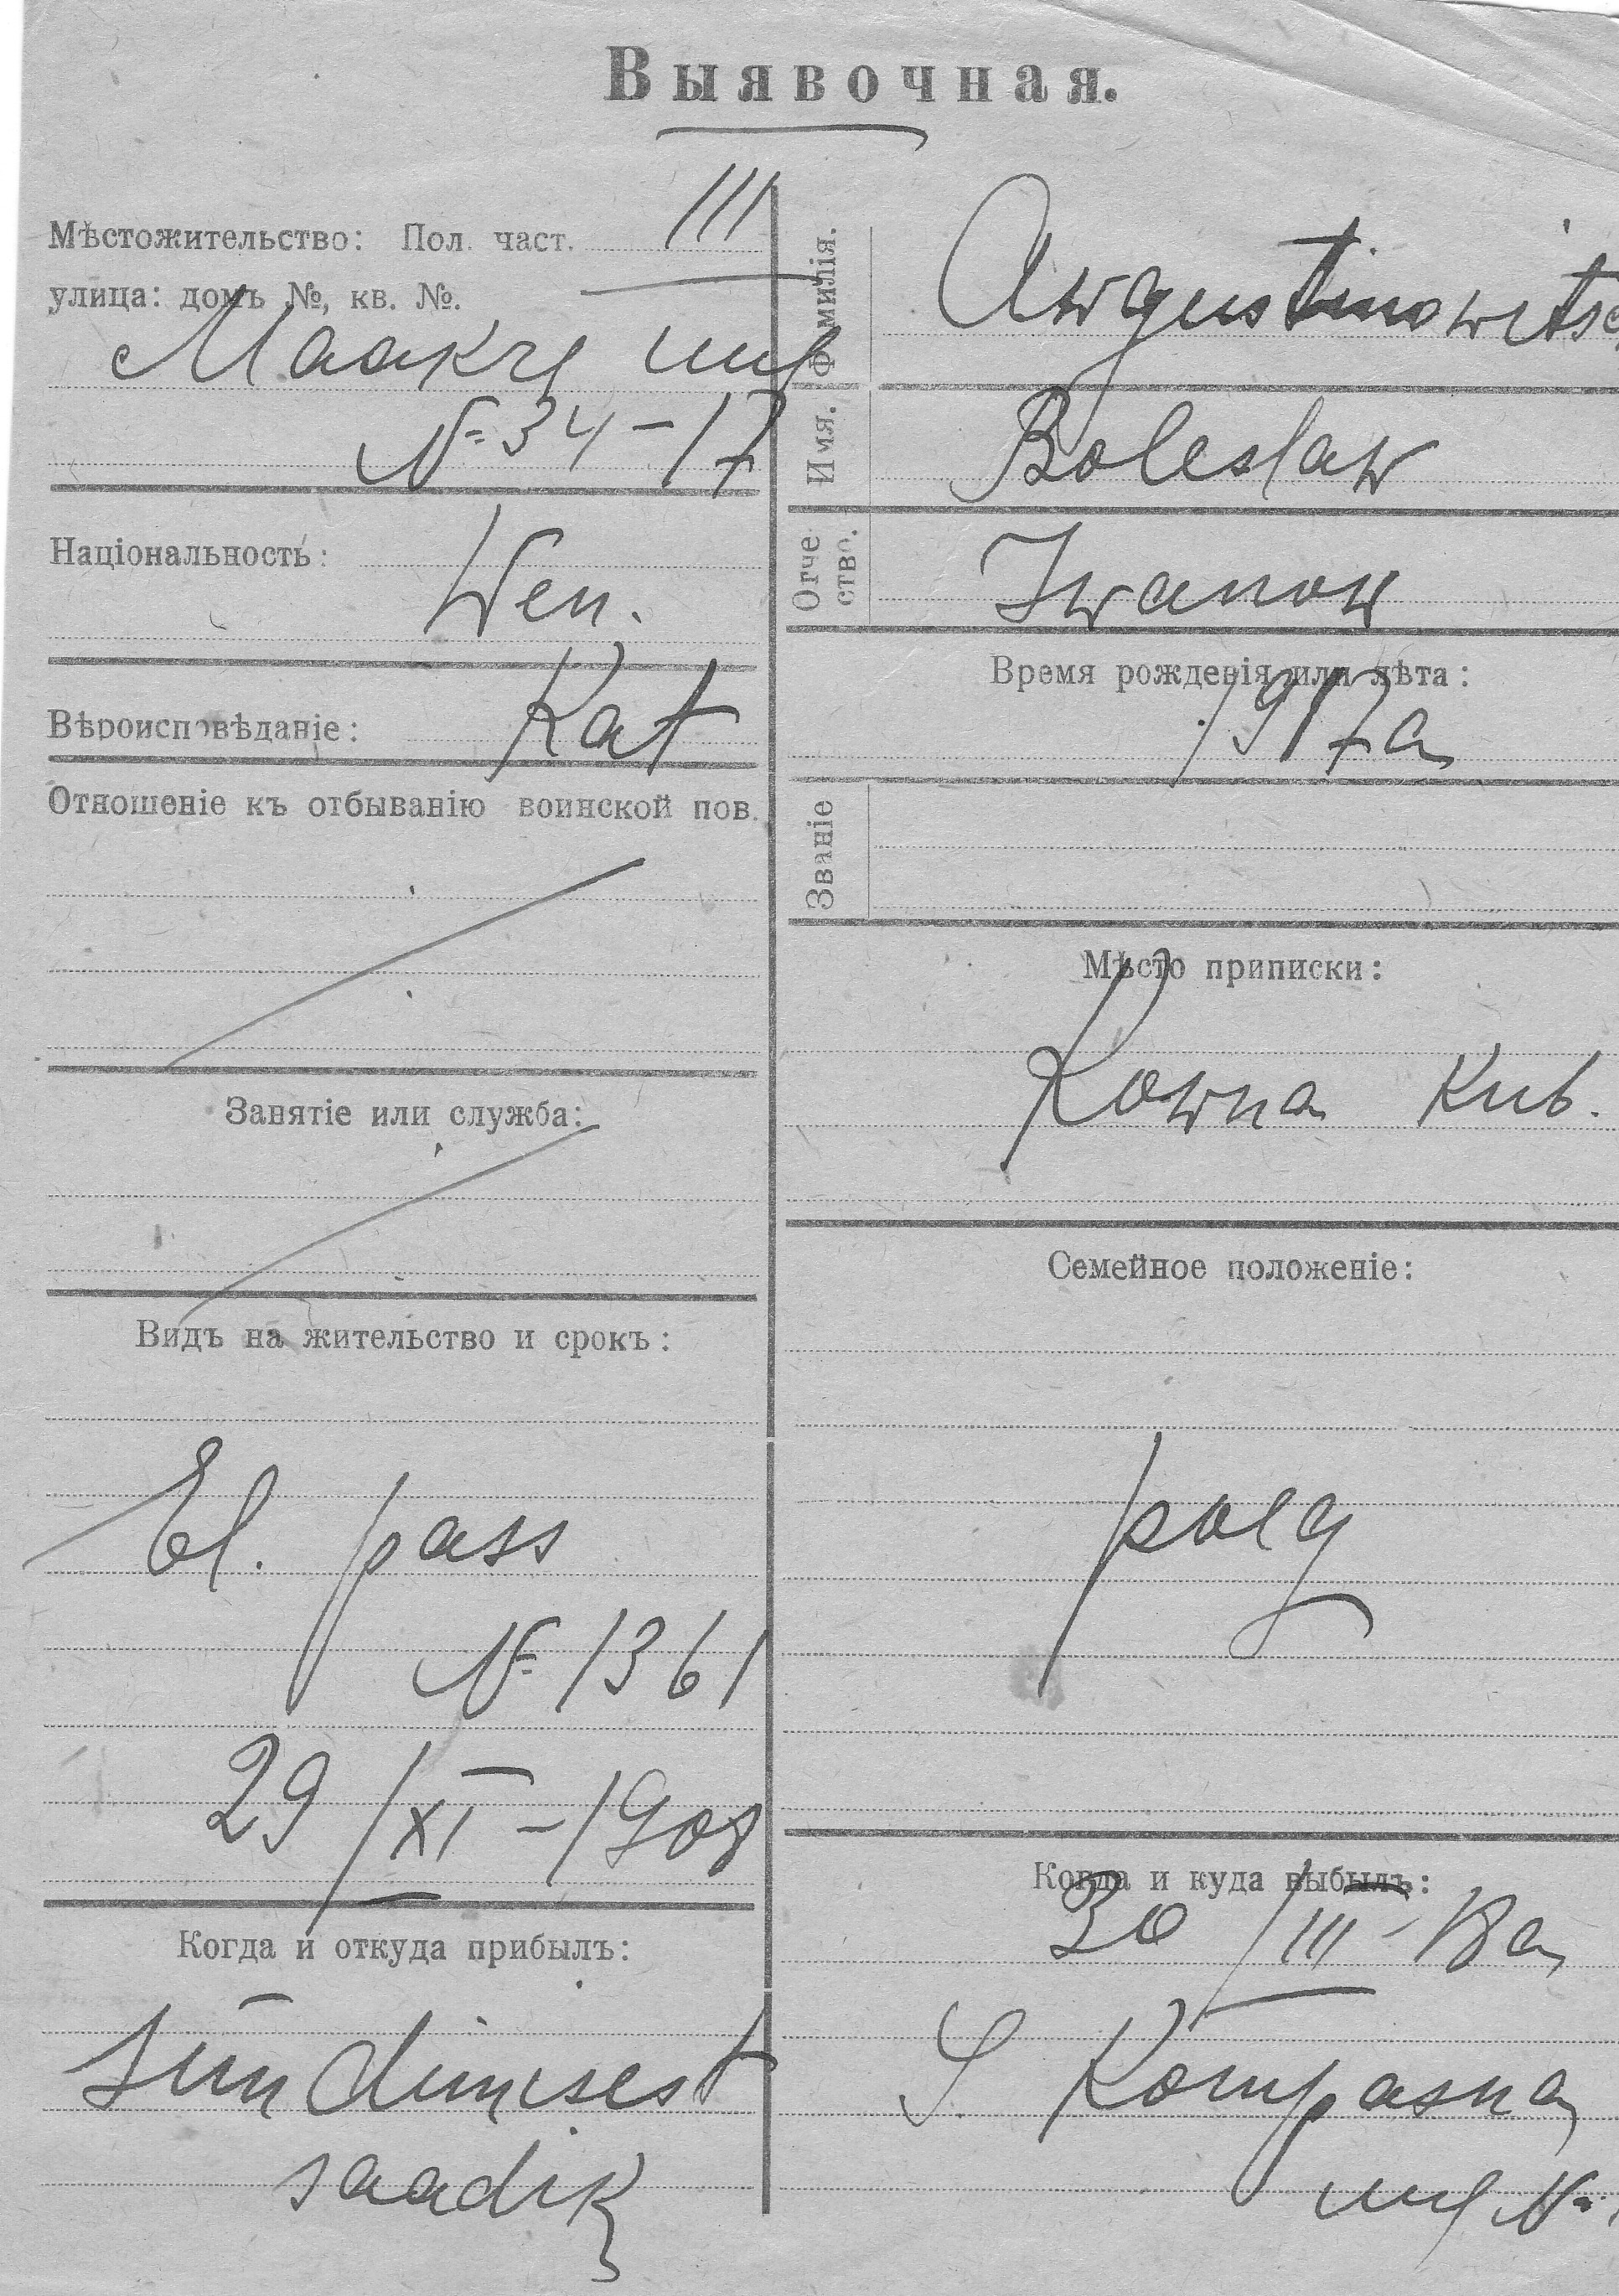 Выявочная.
Мѣстожительство: Пол. част. III
улица: домъ №, кв. №.
Maakry uul
№ 34-17
Національность:
Wen.
Вѣроисповѣданіе: Kat
Отношеніе къ отбыванію воинской пов.
Занятіе или служба:
Видъ на жительство и срокъ:
El. pass
№ 1361
29/XI-1908
Когда и откуда прибылъ:
sündimisest
saadik
Фамилія. Awgustinowitsc
Имя. Boleslaw
Отчество. Iwanow
Время рожденія или лѣта:
1917 a
Званіе
Мѣсто приписки:
Kowna Kub.
Семейное положеніе:
poeg
Когда и куда выбылъ:
30/III-18 a
S. Kompasna
uul №